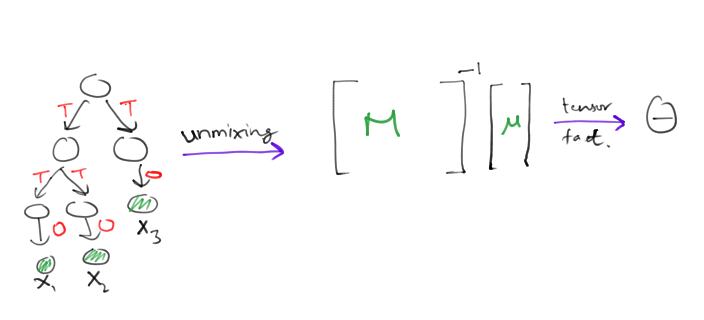 T T
T T O
O O
x₁ x₂ x₃
unmixing
[M]⁻¹ [μ]
tensor
fact.
Θ